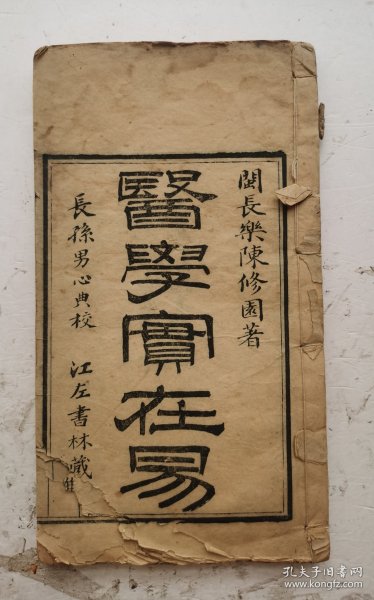 閩長樂陳修園著
醫學實在易
長孫男心典校
江左書林藏
孔夫子旧书网
www.kongfz.com